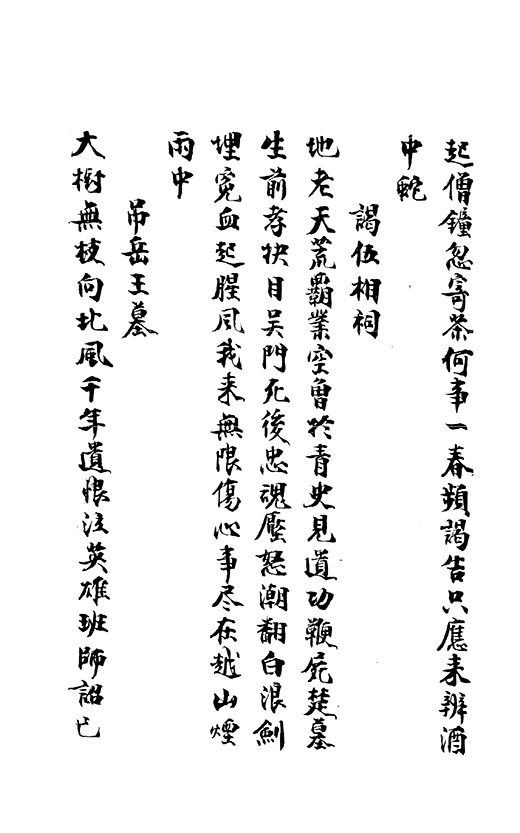 起僧鐘忽寄茶何事一春頻謁告只應未辨酒
中蛇
謁伍相祠
地老天荒霸業空曾於青史見遺功鞭屍楚墓
生前孝抉目吳門死後忠魂壓怒潮翻白浪劍
埋冤血起腥風我来無限傷心事尽在越山煙
雨中
吊岳王墓
大樹無枝向北風千年遺恨泣英雄班師詔已